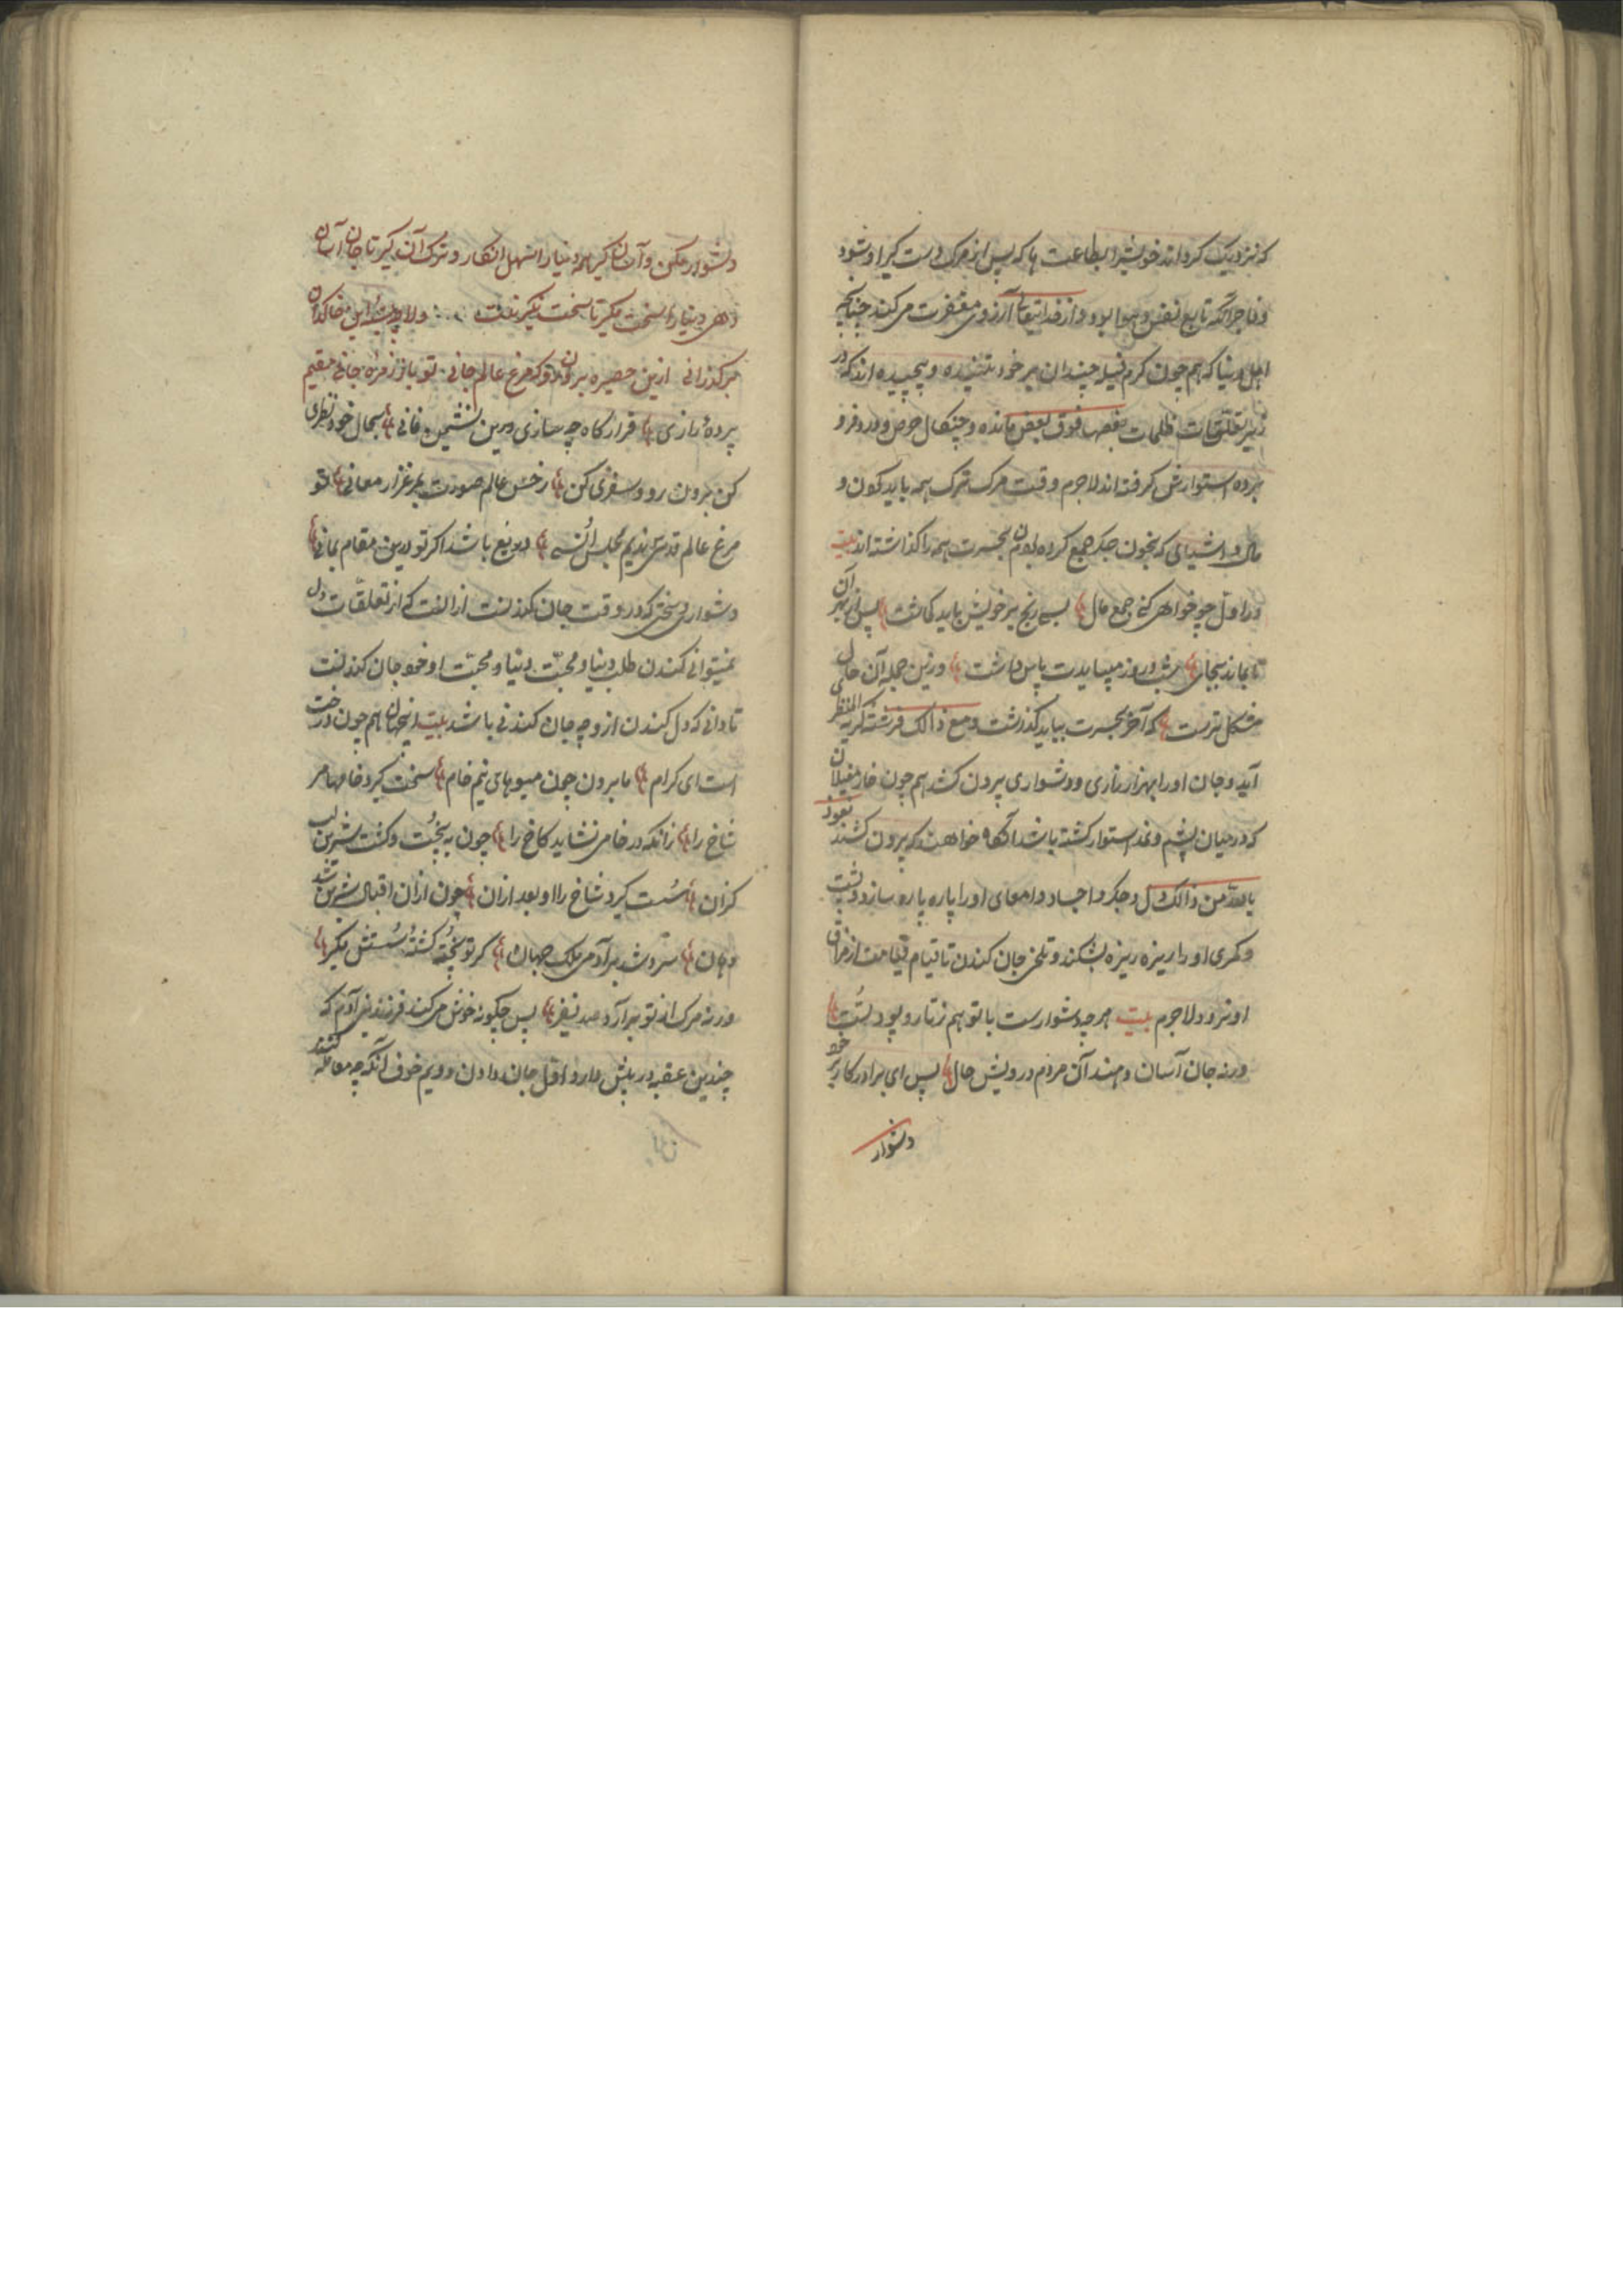 که نزدیک گرداند خویش را بطاعت ها که پس از مرگ دست گیر او شود
و فاجر آنکه تابع نفس و هوا بود و از خدایتعالی آرزوی مغفرت می کند چنانچه
اهل دنیا که هم چون کرم فیله چندان بر خود تنیده و پیچیده اند که در
زیر تعلقات ظلمات بعضها فوق بعض مانده و چنگال حرص و درد فرو
برده استوارش گرفته اند لاجرم وقت مرگ ترک همه باید کون و
مال و اشیای که بخون جگر جمع کرده بودن بحسرت همه را گذاشته اند بیت
در اول چو خواهی کنی جمع مال بسی رنج بر خویش باید کماشت پس از بهر آن
تا بماند بجای شب و روز میبایدت پاس داشت وزین جمله آن حال
مشکل ترست که آخر بحسرت بباید گذشت و مع ذالک فرشته کریه المنظری
آید و جان او را بهزار زاری و دشواری بیرون کشد هم چون خار مغیلان
که در میان پشم و نمد استوار گشته باشد آنگاه خواهند که بیرون کشند نعوذ
بالله من ذالک دل و جگر و اجساد و امعای او را پاره پاره سازد و پشت
و کمری او را ریزه ریزه بشکند و تلخی جان کندن تا قیام قیامت از مذاق
او نرود لاجرم بیت هر چه دشوارست با تو هم ز تار و پود تست
ورنه جان آسان دهند آن مردم درویش حال پس ای برادر کار بر خود
دشوار
دشوار مکن و آسان گیر همه دنیا را سهل انگار و ترک آن گیر تا جان آسان
دهی دنیا را سخت مگیر تا سخت نگیرندت دلا چیست این خاکدان
بر گذرانی ازین حصیره برون رو که مرغ عالم جانی تو باز زمره جانی مقیم
پرده رازی قرارگاه چه سازی درین نشیمن فانی بحال خود نظری
کن برون رو و سفری کن ز حبس عالم صورت بمرغزار معانی تو
مرغ عالم قدسی ندیم مجلس انسی دریغ باشد اگر تو درین مقام بمانی
دشواری و سختی که در وقت جان کندنت از الفت که از تعلقات دل
نمیتوانی کندن طلب دنیا و محبت دنیا و محبت او خود جان کندنت
تا دانی که دل کندن از وجه جان کندنی باشد بیت اینجهان هم چون درخت
است ای کرام ما برون چون میوهای نیم خام سخت گیرد خامها مر
شاخ را زانکه در خامی نشاید کاخ را چون به پخت و گشت شیرین لب
گزان سست گیرد شاخ را او بعد ازان چون ازان اقبال شیرین شد
دهان سرد شد بر آدمی ملک جهان گر تو پخته گشته سستش بگیر
ورنه مرگ از تو برآرد صد نفیر پس چگونه خوش می کند فرزند بنی آدم که
چندین عقبه در پیش دارد اول جان دادن دویم خوف آنکه چه معامله کنند